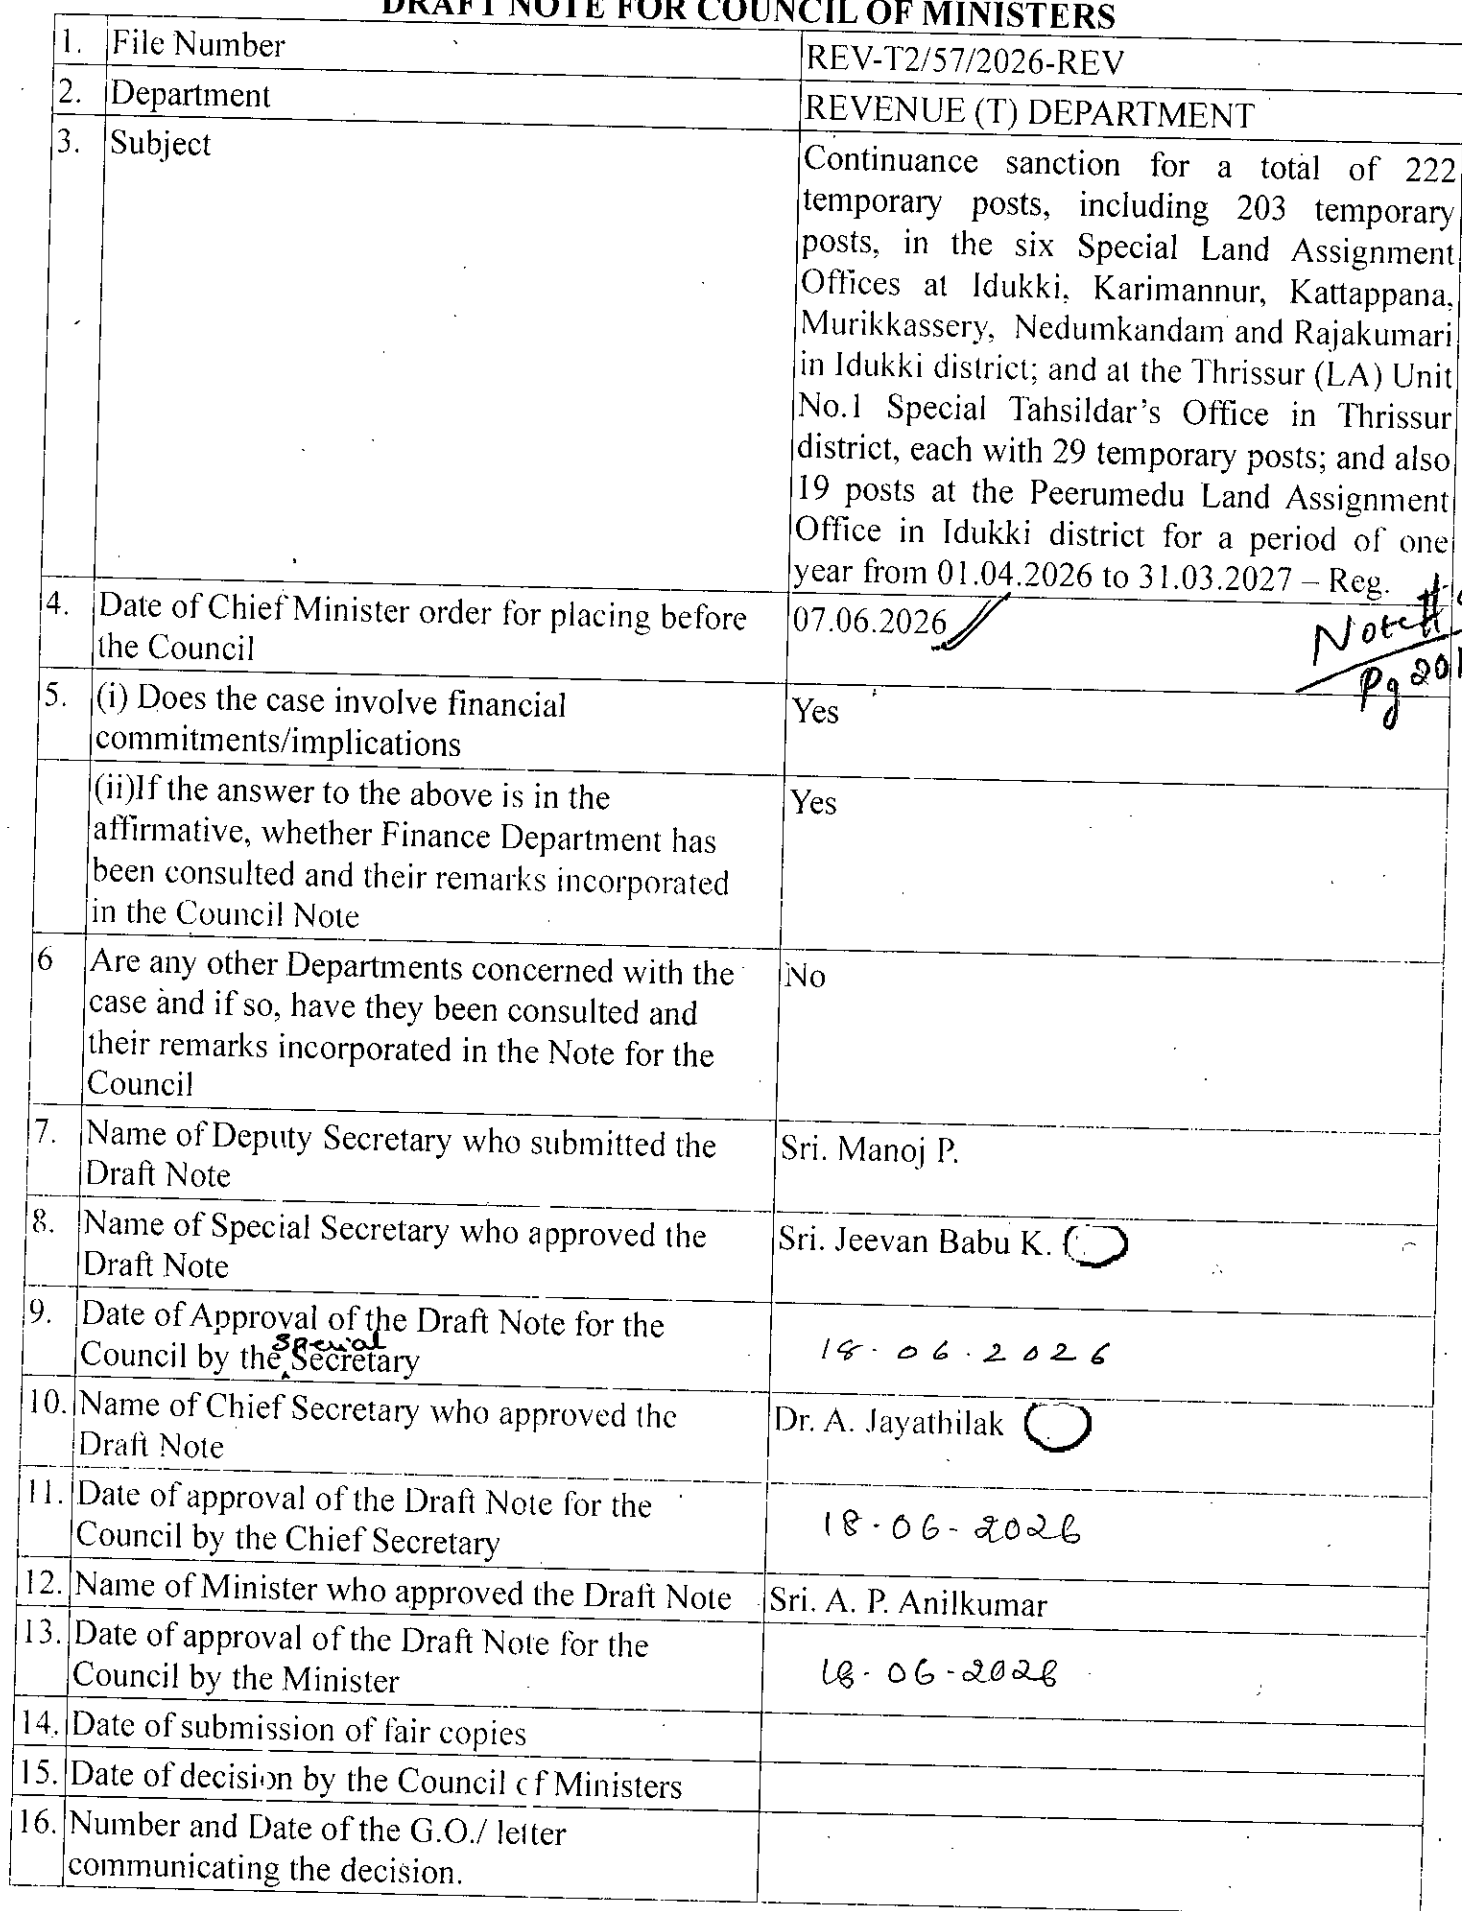 DRAFT NOTE FOR COUNCIL OF MINISTERS
1. File Number REV-T2/57/2026-REV
2. Department REVENUE (T) DEPARTMENT
3. Subject Continuance sanction for a total of 222
temporary posts, including 203 temporary
posts, in the six Special Land Assignment
Offices at Idukki, Karimannur, Kattappana,
Murikkassery, Nedumkandam and Rajakumari
in Idukki district; and at the Thrissur (LA) Unit
No.1 Special Tahsildar's Office in Thrissur
district, each with 29 temporary posts; and also
19 posts at the Peerumedu Land Assignment
Office in Idukki district for a period of one
year from 01.04.2026 to 31.03.2027 – Reg.
4. Date of Chief Minister order for placing before 07.06.2026
the Council
Note
Pg 201
5. (i) Does the case involve financial Yes
commitments/implications
(ii)If the answer to the above is in the Yes
affirmative, whether Finance Department has
been consulted and their remarks incorporated
in the Council Note
6 Are any other Departments concerned with the No
case and if so, have they been consulted and
their remarks incorporated in the Note for the
Council
7. Name of Deputy Secretary who submitted the Sri. Manoj P.
Draft Note
8. Name of Special Secretary who approved the Sri. Jeevan Babu K.
Draft Note
9. Date of Approval of the Draft Note for the 18.06.2026
special
Council by the Secretary
10. Name of Chief Secretary who approved the Dr. A. Jayathilak
Draft Note
11. Date of approval of the Draft Note for the 18.06-2026
Council by the Chief Secretary
12. Name of Minister who approved the Draft Note Sri. A. P. Anilkumar
13. Date of approval of the Draft Note for the 18-06-2026
Council by the Minister
14. Date of submission of fair copies
15. Date of decision by the Council of Ministers
16. Number and Date of the G.O./ letter
communicating the decision.